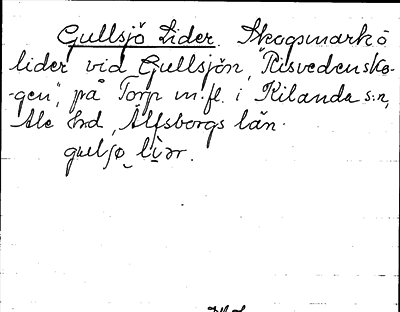 Gullsjö Lider. Skogsmark o
lider vid Gullsjön, "Risvedensko-
-gen", på Torp m. fl. i Kilanda s:n,
Ale hd, Älfsborgs län.
gulʃø liər.